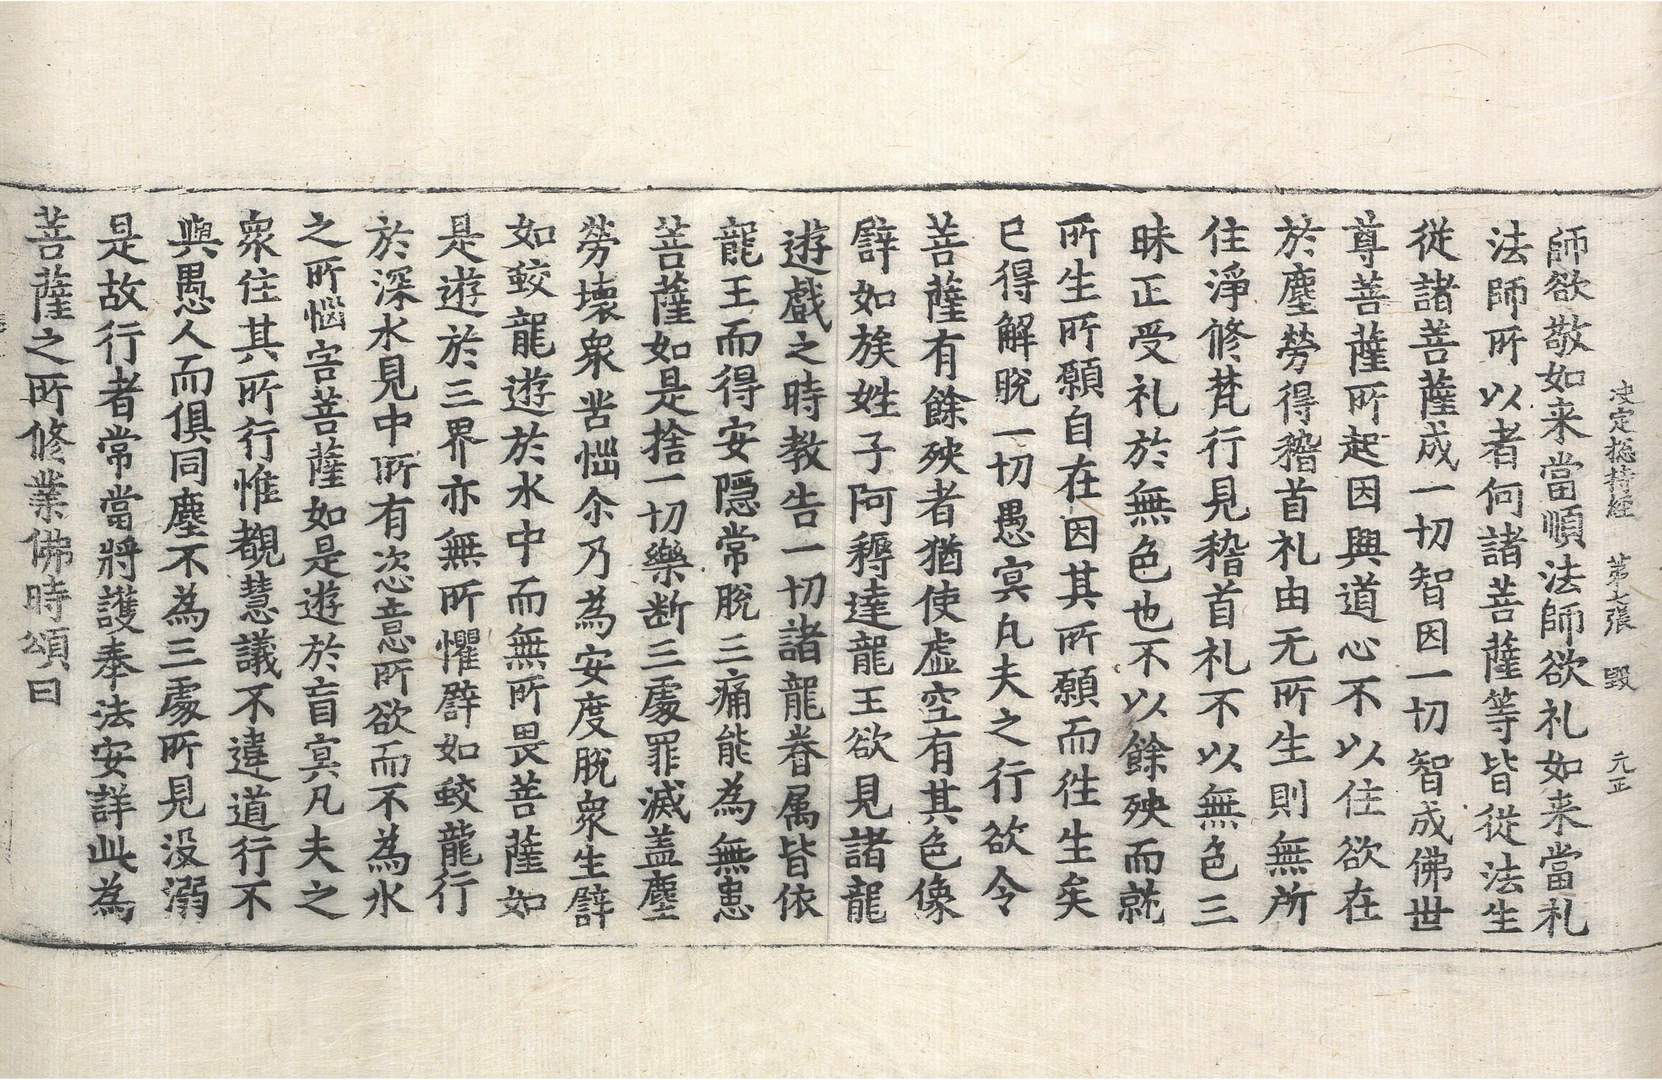 決定揔持經 第七張 毀 元正
師欲敬如来當順法師欲礼如来當札
法師所以者何諸菩薩等皆從法生
從諸菩薩成一切智因一切智成佛世
尊菩薩所起因興道心不以住欲在
於塵勞得稽首礼由无所生則無所
住淨修梵行見稽首礼不以無色三
昧正受礼於無色也不以餘殃而就
所生所願自在因其所願而往生矣
已得解脫一切愚冥凡夫之行欲令
菩薩有餘殃者猶使虛空有其色像
譬如族姓子阿耨達龍王欲見諸龍
遊戲之時教告一切諸龍眷属皆依
龍王而得安隱常脫三痛能為無恚
菩薩如是捨一切樂断三處罪滅盖塵
勞壞衆苦惱尒乃為安度脫衆生譬
如蛟龍遊於水中而無所畏菩薩如
是遊於三界亦無所懼譬如蛟龍行
於深水見中所有恣意所欲而不為水
之所惱害菩薩如是遊於盲冥凡夫之
衆住其所行惟觀慧議不違道行不
與愚人而俱同塵不為三處所見没溺
是故行者常當將護奉法安詳此為
菩薩之所修業佛時頌曰